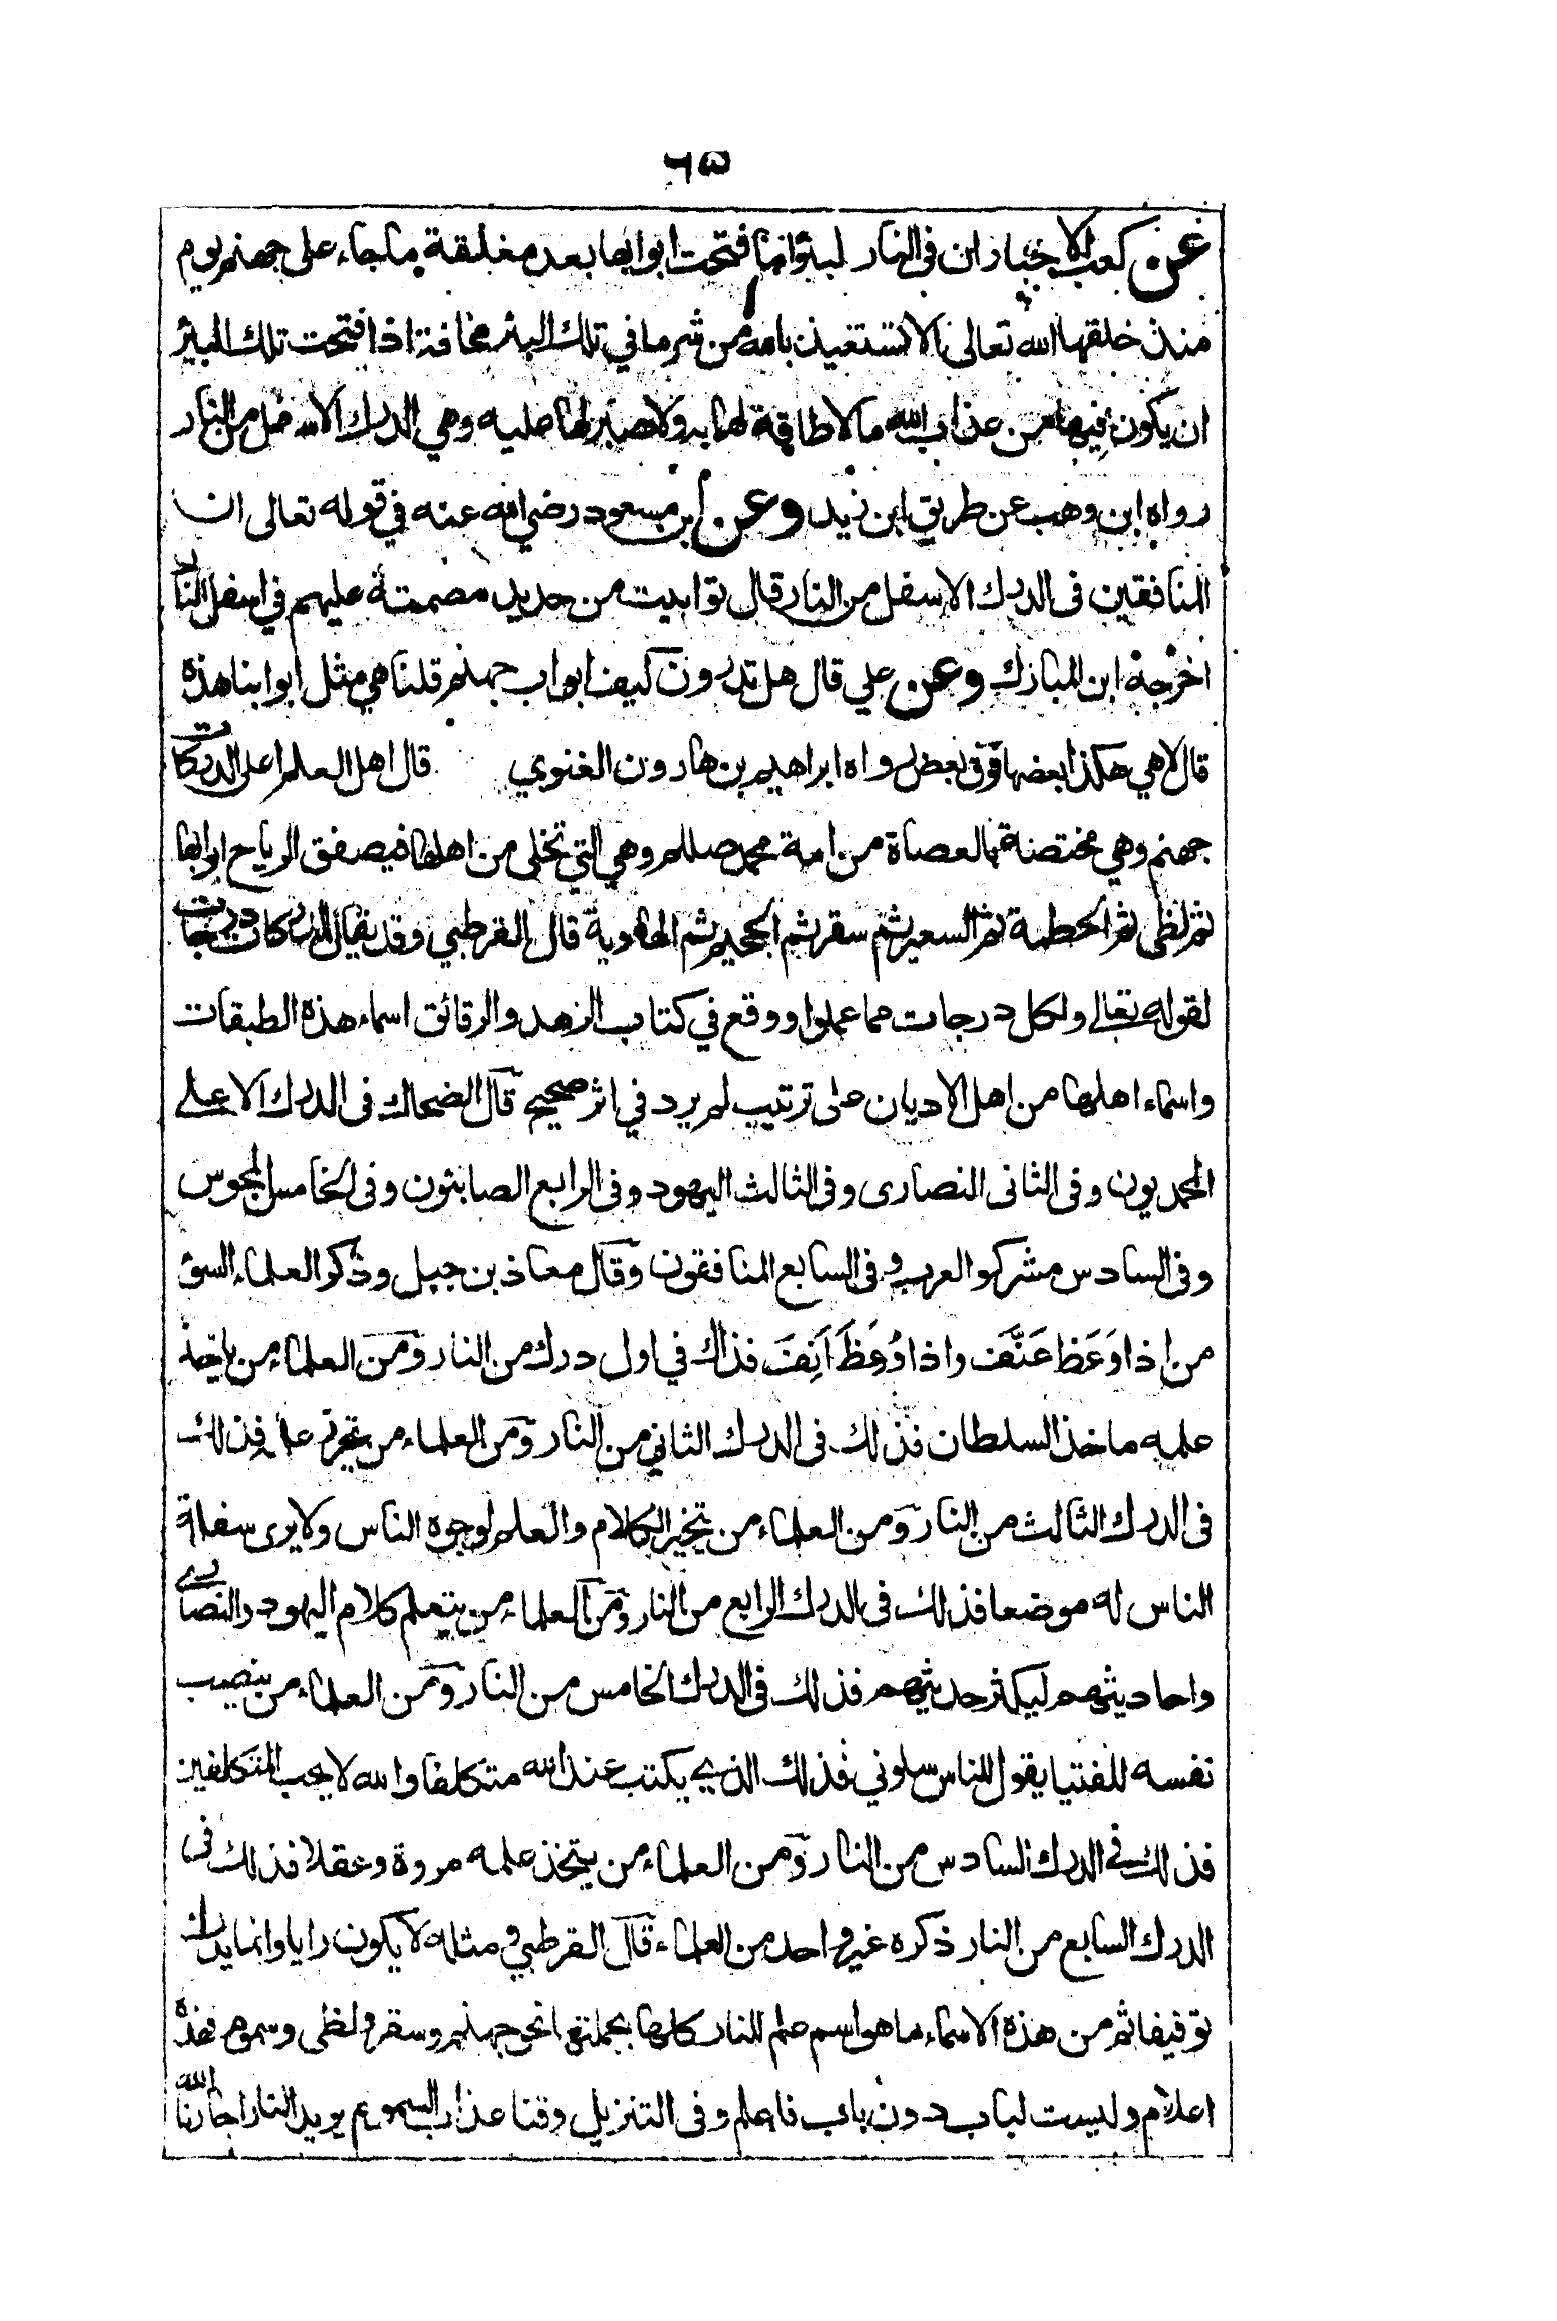 ٦٥
عن كعب الاحبار ان فى النار لبئرا ما فتحت ابوابها بعد مغلقة ما جاء على جهنم يوم
منذ خلقها الله تعالى الا تستعيذ بالله من شر ما في تلك البئر مخافة اذا فتحت تلك البئر
ان يكون فيها من عذاب الله ما لا طاقة لها به ولا صبر لها عليه وهي الدرك الاسفل من النار
رواه ابن وهب عن طريق ابن زيد وعن ابن مسعود رضي الله عنه في قوله تعالى ان
المنافقين فى الدرك الاسفل من النار قال توابيت من حديد مصمتة عليهم في اسفل النار
اخرجه ابن المبارك وعن علي قال هل تدرون كيف ابواب جهنم قلنا هي مثل ابوابنا هذه
قال لا هي هكذا بعضها فوق بعض رواه ابراهيم بن هارون الغنوي قال اهل العلم اعلى الدركات
جهنم وهي مختصة بالعصاة من امة محمد صللم وهي التي تخلى من اهلها فيصفق الرياح ابوابها
ثم لظى ثم الحطمة ثم السعير ثم سقر ثم الجحيم ثم الهاوية قال القرطبي وقد يقال للدركات درجات
لقوله تعالى ولكل درجات مما عملوا ووقع في كتاب الزهد والرقائق اسماء هذه الطبقات
واسماء اهلها من اهل الاديان على ترتيب لم يرد في اثر صحيح قال الضحاك فى الدرك الاعلى
المحمديون وفى الثانى النصارى وفى الثالث اليهود وفى الرابع الصابئون وفى الخامس المجوس
وفى السادس مشركو العرب وفى السابع المنافقون وقال معاذ بن جبل وذكر العلماء السؤ
من اذا وَعَظ عَنَّف واذا وُعِظَ اَنِفَ فذاك في اول درك من النار ومن العلماء من ياخذ
علمه ماخذ السلطان فذلك فى الدرك الثاني من النار ومن العلماء من يتحرز علمه فذلك
فى الدرك الثالث من النار ومن العلماء من يتخير الكلام والعلم لوجوه الناس ولا يرى سفلة
الناس له موضعا فذلك فى الدرك الرابع من النار ومن العلماء من يتعلم كلام اليهود والنصارى
واحاديثهم ليكثر حديثهم فذلك فى الدرك الخامس من النار ومن العلماء من ينصب
نفسه للفتيا يقول للناس سلوني فذلك الذي يكتب عند الله متكلفا والله لا يحب المتكلفين
فذلك في الدرك السادس من النار ومن العلماء من يتخذ علمه مروة وعقلا فذلك فى
الدرك السابع من النار ذكره غير واحد من العلماء قال القرطبي ومثله لا يكون رايا وانما يدرك
توقيفا ثم من هذه الاسماء ما هو اسم علم للنار كلها بجملتها نحو جهنم وسقر ولظى وسموم فهذه
اعلام وليست لباب دون باب فاعلم وفى التنزيل وقنا عذاب السموم يريد النار اجارنا الله